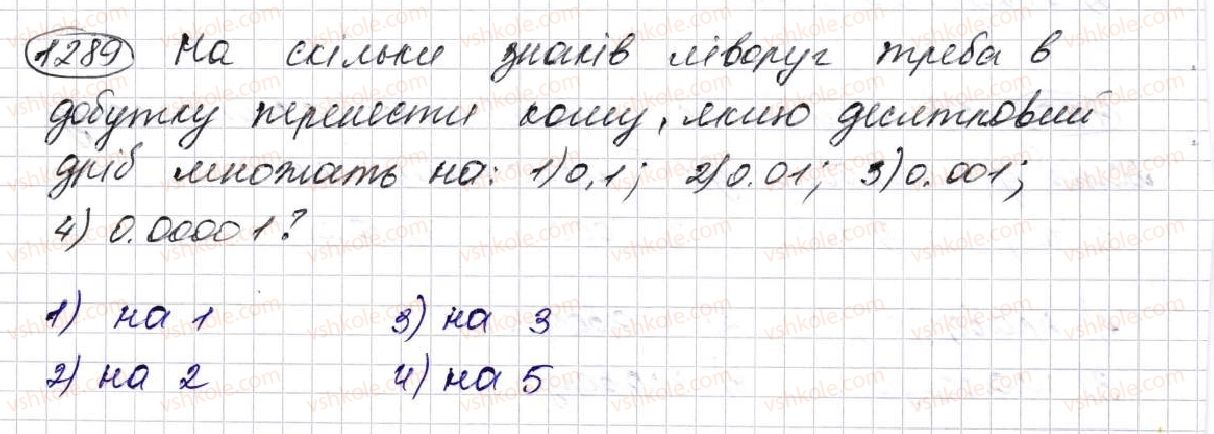 1289 На скільки знаків ліворуч треба в
добутку перенести кому, якщо десятковий
дріб множать на: 1) 0,1; 2) 0.01; 3) 0.001;
4) 0.00001?
1) на 1 3) на 3
2) на 2 4) на 5